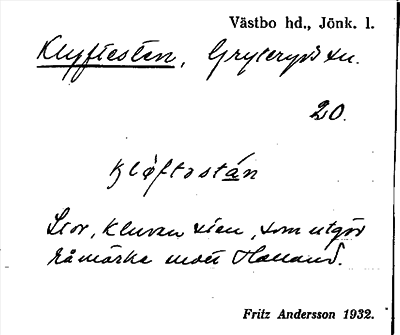 Västbo hd., Jönk. l.
Klyftesten, Gryteryds sn.
20.
kløftastán
Stor, kluven sten, som utgör
råmärke mot Halland.
Fritz Andersson 1932.